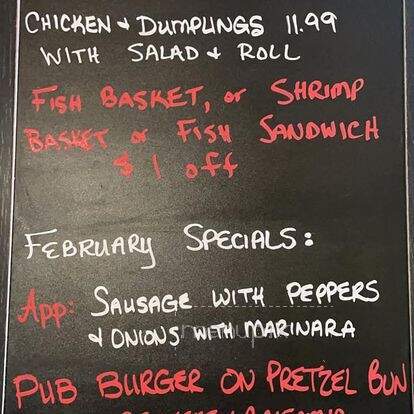 CHICKEN & DUMPLINGS 11.99
WITH SALAD & ROLL
FISH BASKET, or SHRIMP
BASKET or FISH SANDWICH
$1 off
FEBRUARY SPECIALS:
App: SAUSAGE WITH PEPPERS
& ONIONS WITH MARINARA
PUB BURGER ON PRETZEL BUN